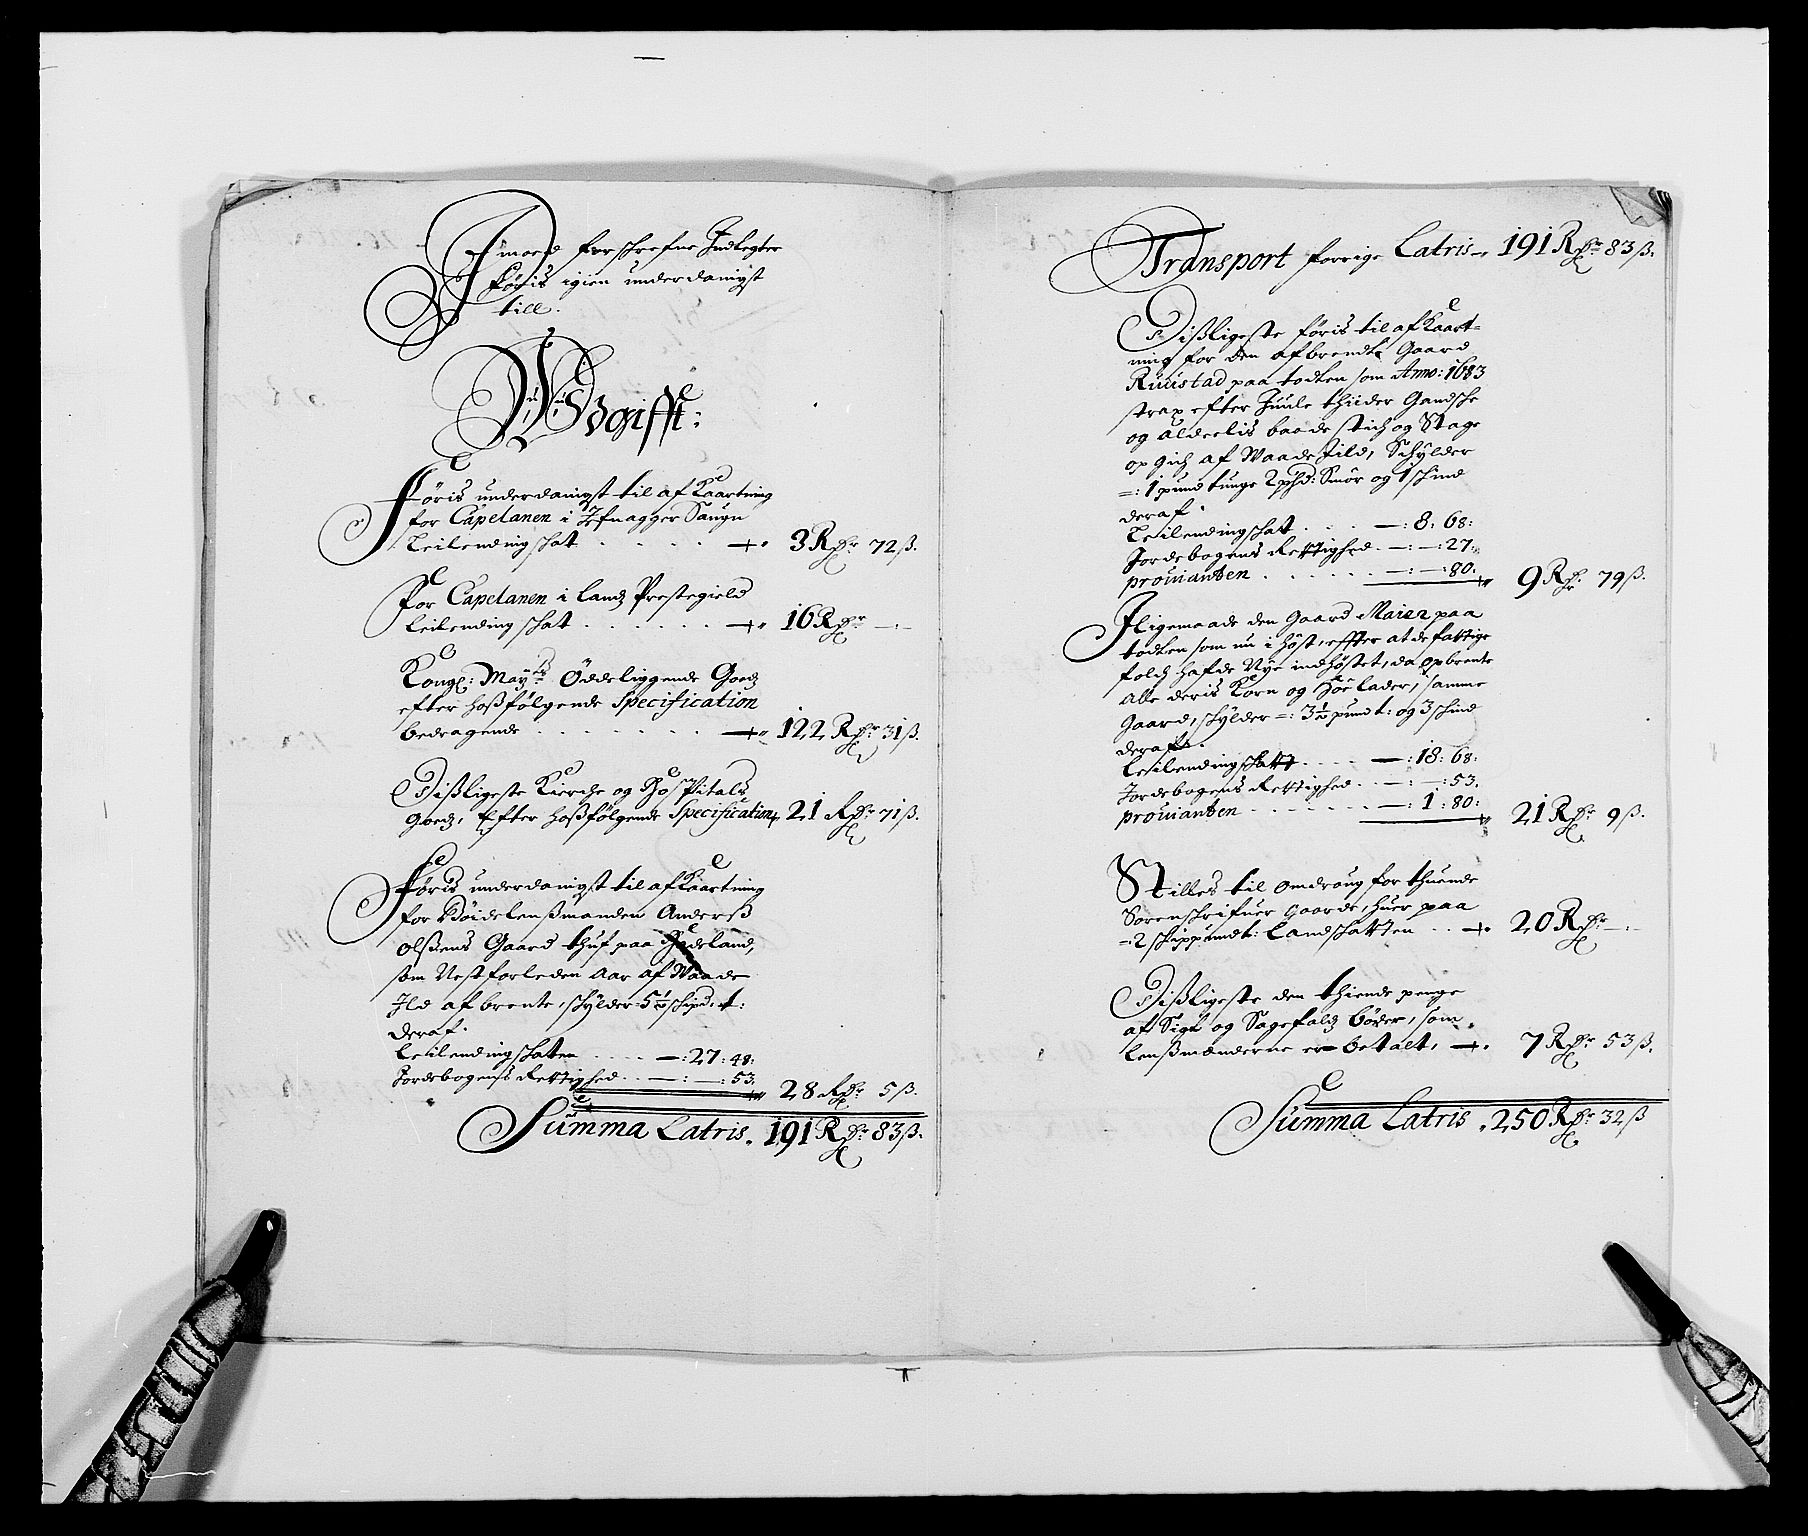 Imoed forschrefne Indtegter
Føris igien underdanigst
till.
Udgifft:
Føris underdanigst til af Kaartning
for Capelanen i Jefnagger Saugn
Leilendingschat . . . . . 3 Rdr 72 ß.
For Capelanen i Landz Prestegield
Leilendingschat . . . . . . 16 Rdr —:—
Kongl: Maytz Øddeliggende Goedz
efter hoßfølgende Specification
bedragende . . . . . . . 122 Rdr 31 ß.
Dißligeste Kierche og Hospitals
Goedz, Efter hoßfølgende Specification, 21 Rdr 71 ß.
Føris underdanigst til af Kaartning
for Bøidelenßmanden Anderß
Olßens Gaard thuf paa Hadeland,
som Nestforleden Aar af Waade
Ild af brente, schylder 5½ schipd: t:
deraf.
Leilendingschatten . . . . —: 27: 48:
Jordebogenss Rettighed . . —: —: 53. 28 Rdr 5 ß.
Summa Latris. 191 Rdr 83 ß.
Transport forrige Latris 191 Rdr 83 ß.
Dißligeste føris til af Kaart-
ning for den afbrendte Gaard
Ruuistad paa todten som Anno: 1683
strax efter Juule thiider Gandsche
og alderlis baade stich og Stage
op gich af Waade Jild, Schylder
=: 1 pund tunge 2 phd: Smør og 1 schind
deraf.
Leilendingschatt . . . —: 8: 68:
Jordebogens Rettighed. —: —: 27:
prouianten . . . . . . —: —: 80: 9 Rdr 79 ß.
Iligemaade den Gaard Maier paa
todten som nu i høst, effter at de fattige
folch hafde Nye indhøstet, da opbrente
alle deris Korn og Høe lader, samme
Gaard, schylder =: 3½ pund t: og 3 schind
deraf.
Leilendingschatt . . . . —: 18: 68:
Jordebogens Rettighed . —: —: 53.
prouianten . . . . . . . —: 1: 80: 21 Rdr 9 ß.
Stilles til omdraug for thuende
Sorenschrifuer gaarde, huer paa
=2 schippund t: Landschatten . . 20 Rdr —:—
Dißligeste den thiende penge
af Sigt og Sagefaldz bøder, som
Lenßmænderne er betalt, 7 Rdr 53 ß.
Summa Latris. 250 Rdr 32 ß